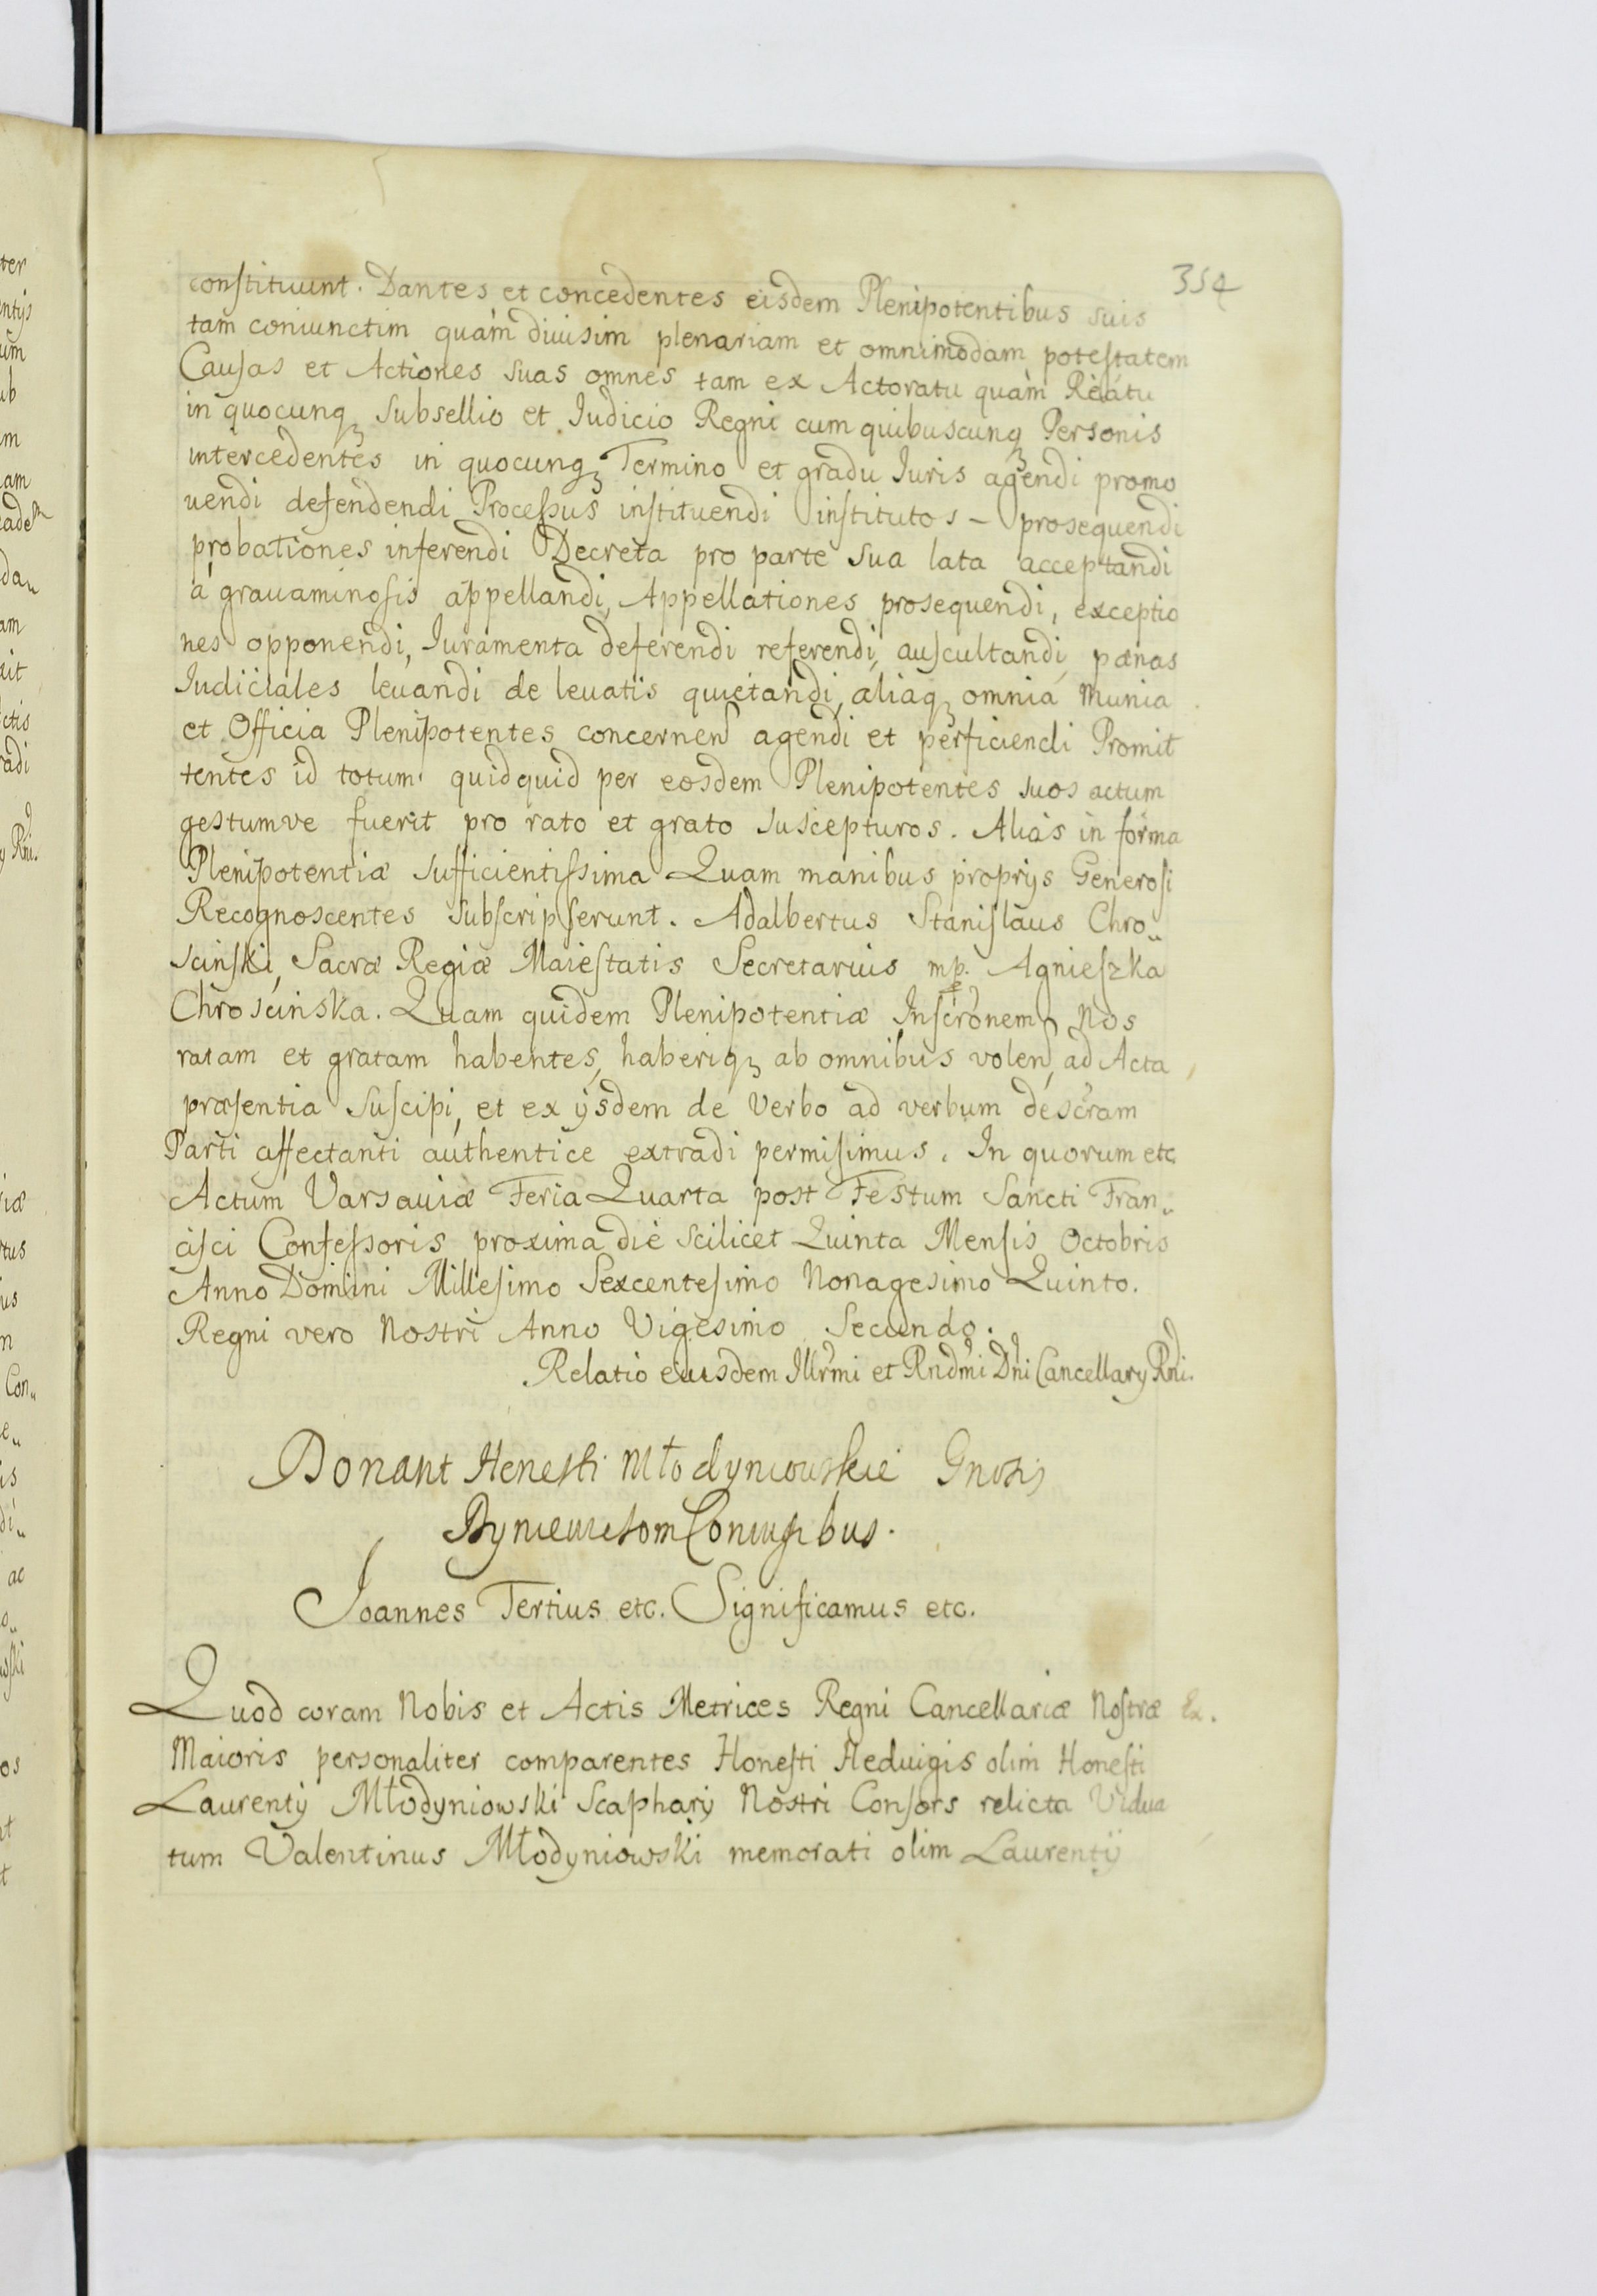 354
constituunt. Dantes et concedentes eisdem Plenipotentibus suis
tam coniunctim quàm diuisim plenariam et omnimodam potestatem
Causas et Actiones suas omnes tam ex Actoratu quàm Reatu
in quocunq₃ Subsellio et Iudicio Regni cum quibuscunq₃ Personis
intercedentes in quocunq₃ Termino et gradu Iuris agendi promo
uendi defendendi Processus instituendi institutos - prosequendi
probationes inferendi Decreta pro parte sua lata acceptandi
à grauaminosis appellandi, Appellationes prosequendi, exceptio
nes opponendi, Iuramenta deferendi referendi, auscultandi, pænas
Iudiciales leuandi de leuatis quietandi, aliaq₃ omnia Munia
et Officia Plenipotentes concernen agendi et perficiendi Promit
tentes id totum quidquid per eosdem Plenipotentes suos actum
gestumve fuerit pro rato et grato suscepturos. Aliàs in forma
Plenipotentiæ sufficientissima Quam manibus proprijs Generosi
Recognoscentes subscripserunt. Adalbertus Stanislaus Chro„
scinski, Sacræ Regiæ Maiestatis Secretarius mp. Agnieszka
Chroscinska. Quam quidem Plenipotentiæ Inscronem Nos
ratam et gratam habentes, haberiq₃ ab omnibus volen, ad Acta
præsentia suscipi, et ex ijsdem de verbo ad verbum descram
Parti affectanti authentice extradi permisimus. In quorum etc
Actum Varsauiæ Feria Quarta post Festum Sancti Fran„
cisci Confessoris proxima die scilicet Quinta Mensis Octobris
Anno Domini Millesimo Sexcentesimo Nonagesimo Quinto.
Regni vero Nostri Anno Vigesimo Secundo.
Relatio eiusdem Illrmi et Rndmi Dni Cancellary Rni.
Donant Honesti Młodyniowskie Gnosis
Coniugibus.
Joannes Tertius etc. Significamus etc.
Quod coram Nobis et Actis Metrices Regni Cancellariæ Nostræ
Maioris personaliter comparentes Honesti Heduigis olim Honesti
Laurentij Młodyniowski Scapharij Nostri Consors relicta Vidua
tum Valentinus Młodyniowski memorati olim Laurentij